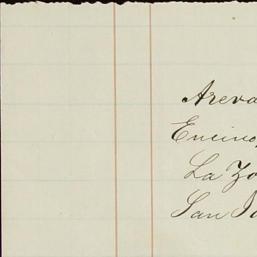 Areva
Encino,
La Zo
San I